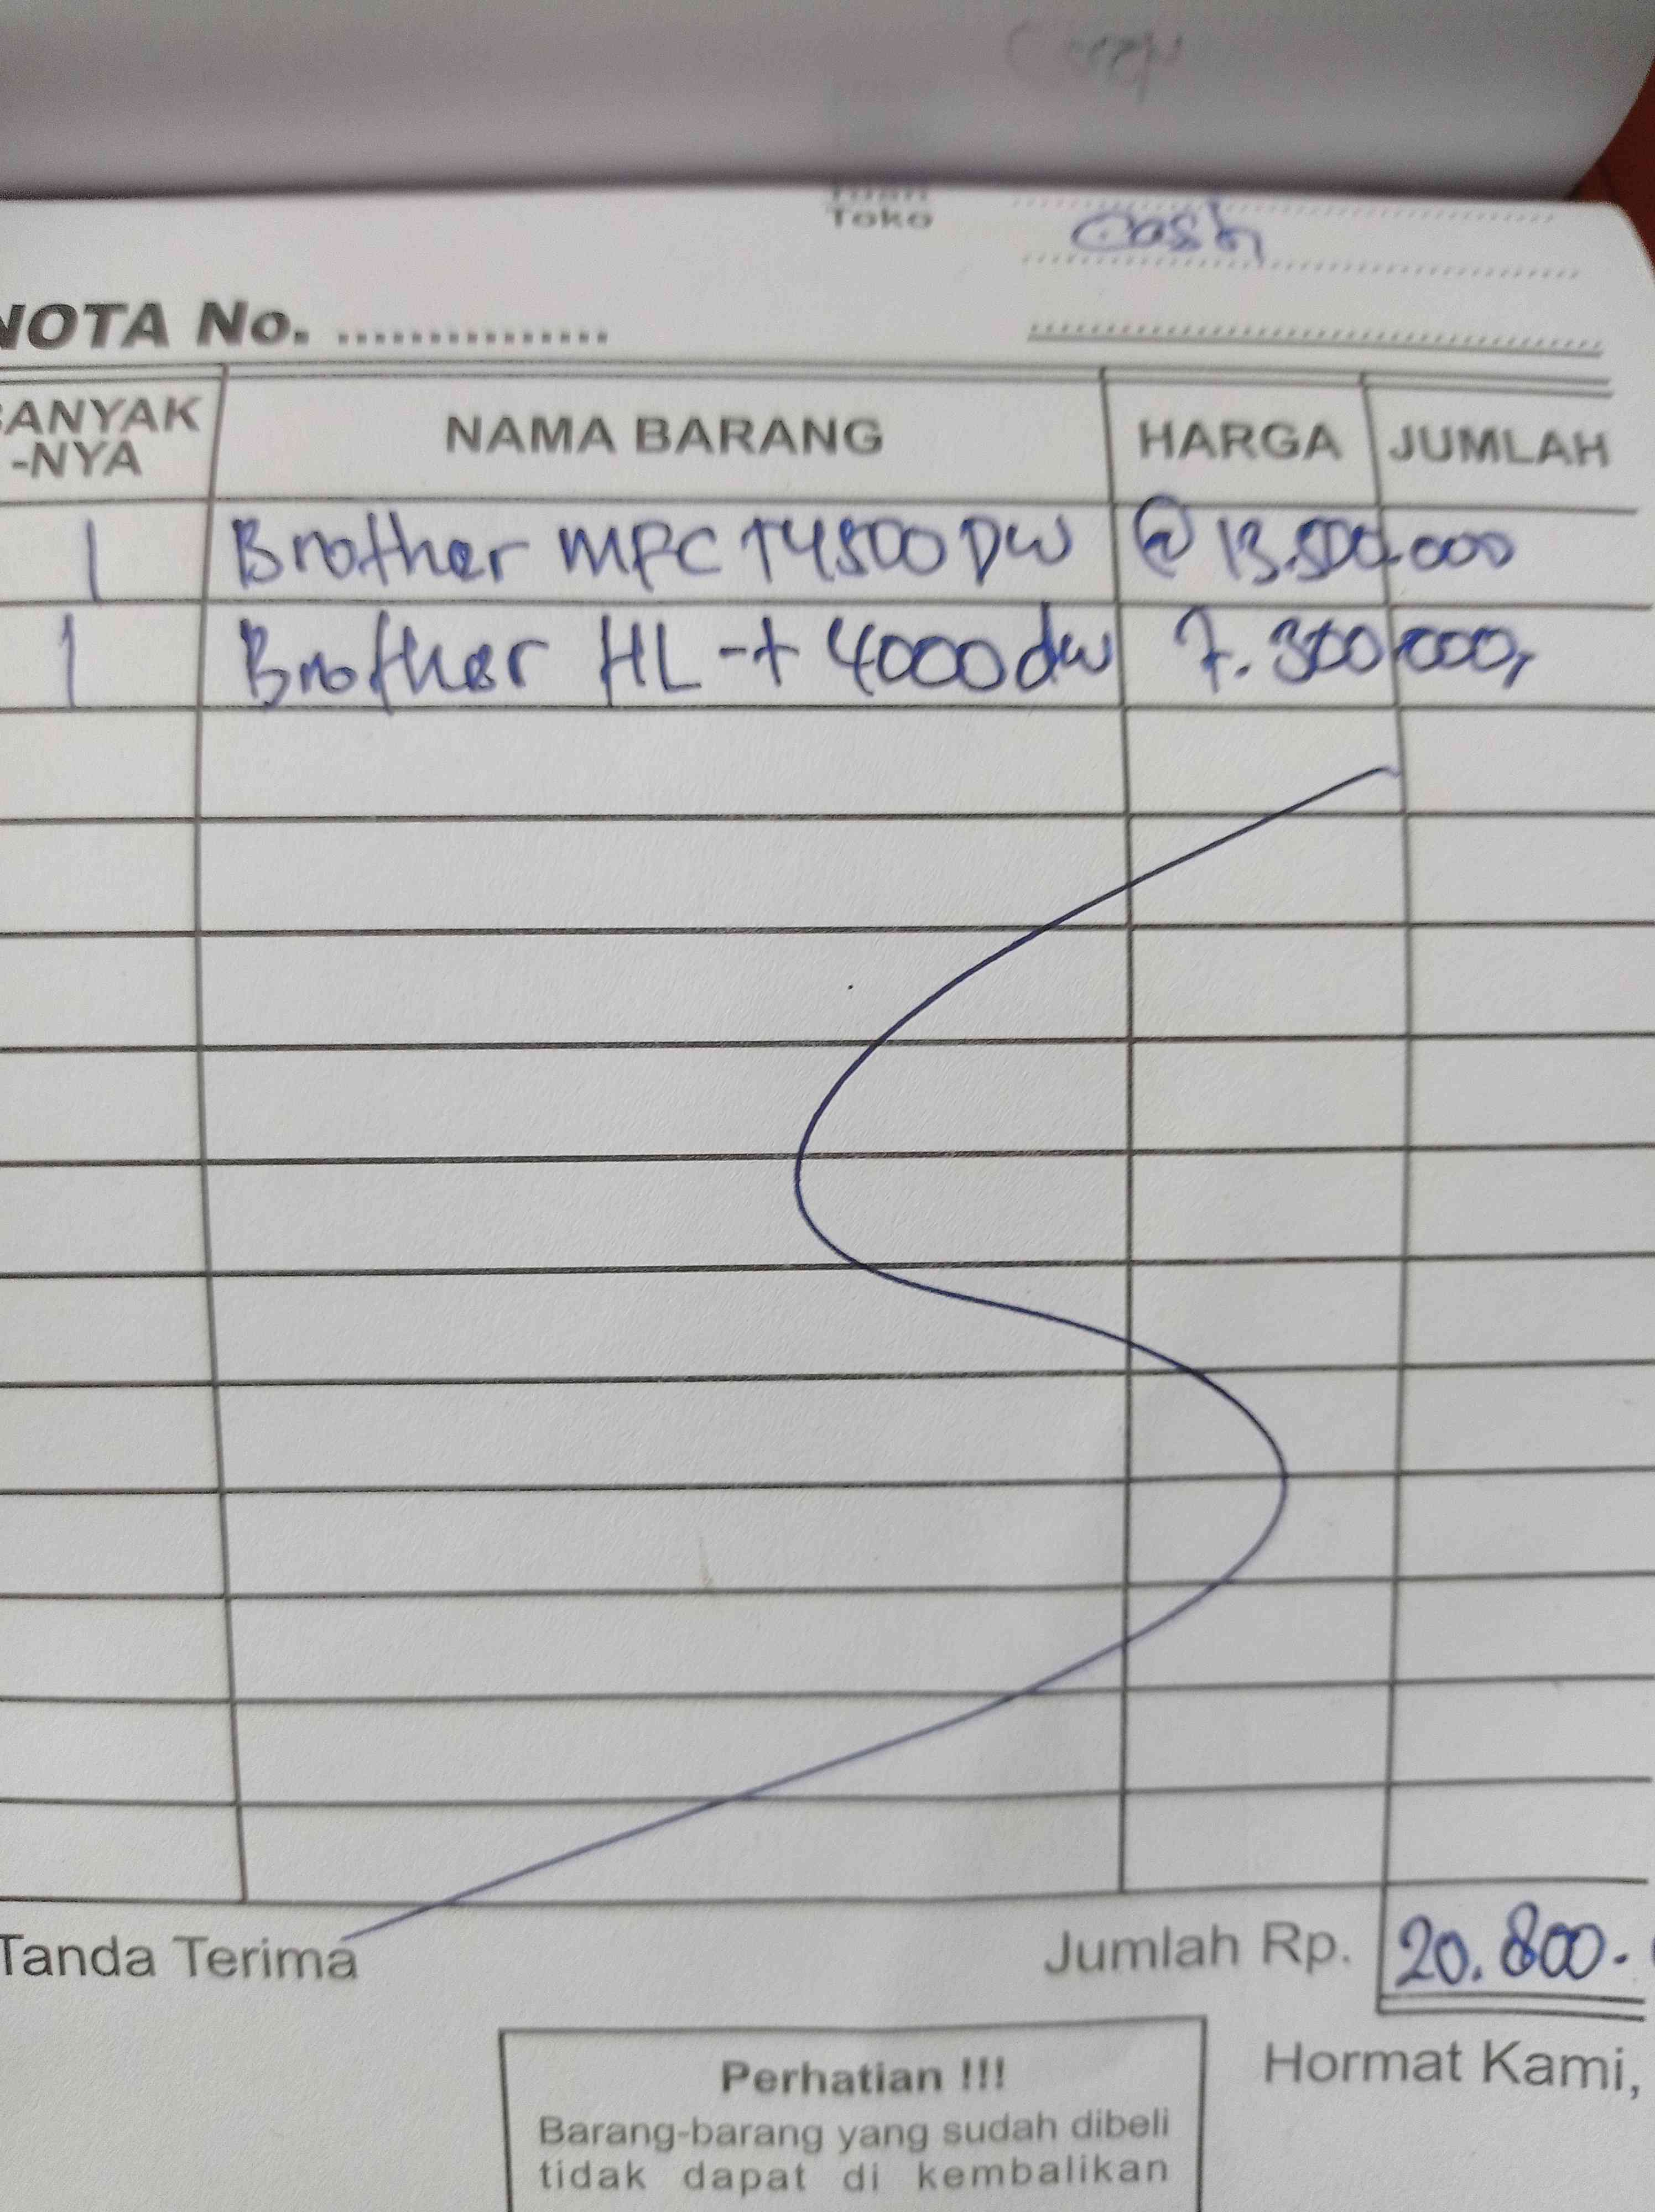 Toko Cash
NOTA No. ...............
BANYAK-NYA NAMA BARANG HARGA JUMLAH
1 Brother MFC T4500 DW @ 13.500.000
1 Brother HL-t 4000 dw 7.300.000,
Tanda Terima Jumlah Rp. 20.800.
Hormat Kami,
Perhatian !!!
Barang-barang yang sudah dibeli
tidak dapat di kembalikan